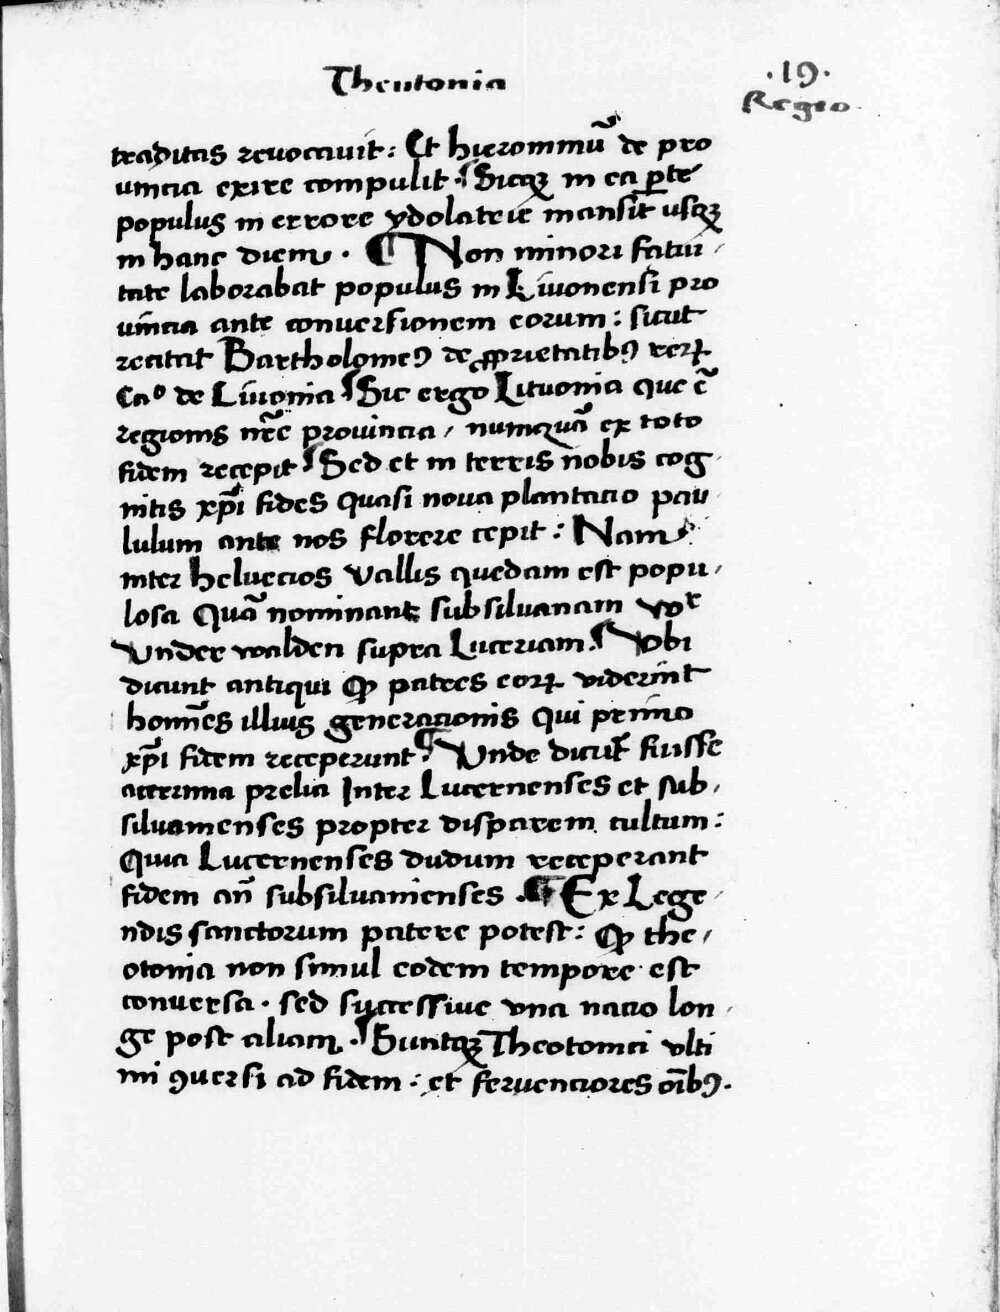 Theutonia
.19.
Regio
traditas revocavit: Et hieronimū de pro
uincia exire compulit. Sicqꝫ in ea ꝑte
populus in errore ydolatrie mansit usqꝫ
in hanc diem. ¶ Non minori fatui-
tate laborabat populus in Livonensi pro
uincia ante conversionem eorum: sicut
recitat Bartholomeꝰ de ꝓprietatibꝰ reꝝ
Cao de Livonia ¶ Sic ergo Lituonia que ē
regionis nr̄e provincia, nunquā ex toto
fidem recepit ¶ Sed et in terris nobis cog-
nitis xp̄i fides quasi nova plantacio pau-
lulum ante nos florere cepit: Nam
inter helvecios vallis quedam est popu-
losa Quā nominant subsilvanam vᵉ
Underwalden supra Luceriam. ¶ Vbi
dicunt antiqui ꝙ patres eoꝝ viderint
homīes illius generacionis qui primo
xp̄i fidem receperunt. ¶ Unde dicūt fuisse
acerrima prelia Inter Lucernenses et sub-
silvanienses propter disparem cultum:
Quia Lucernenses dudum receperant
fidem an̄ subsilvanienses. ¶ Ex Lege-
ndis sanctorum patere potest: ꝙ the-
otonia non simul eodem tempore est
conversa. sed successive una nacio lon-
ge post aliam. ¶ Suntqꝫ Theotonici ulti
mi ꝯversi ad fidem: et fervenciores oībꝰ.